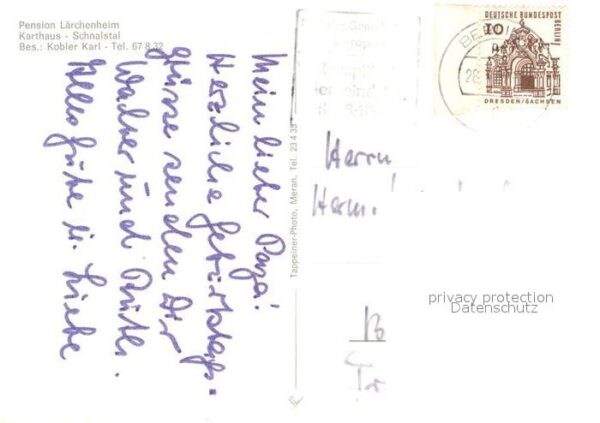 Pension Lärchenheim
Karthaus - Schnalstal
Bes.: Kobler Karl - Tel. 67 8 32
Mein lieber Papa!
Herzliche Geburtstags-
grüsse senden Dir
Walter und Ruth.
Alles Gute u. Liebe
Tappeiner-Photo, Meran, Tel. 23 4 35
DEUTSCHE BUNDESPOST
BERLIN
10
DRESDEN/SACHSEN
Herrn
privacy protection
Datenschutz